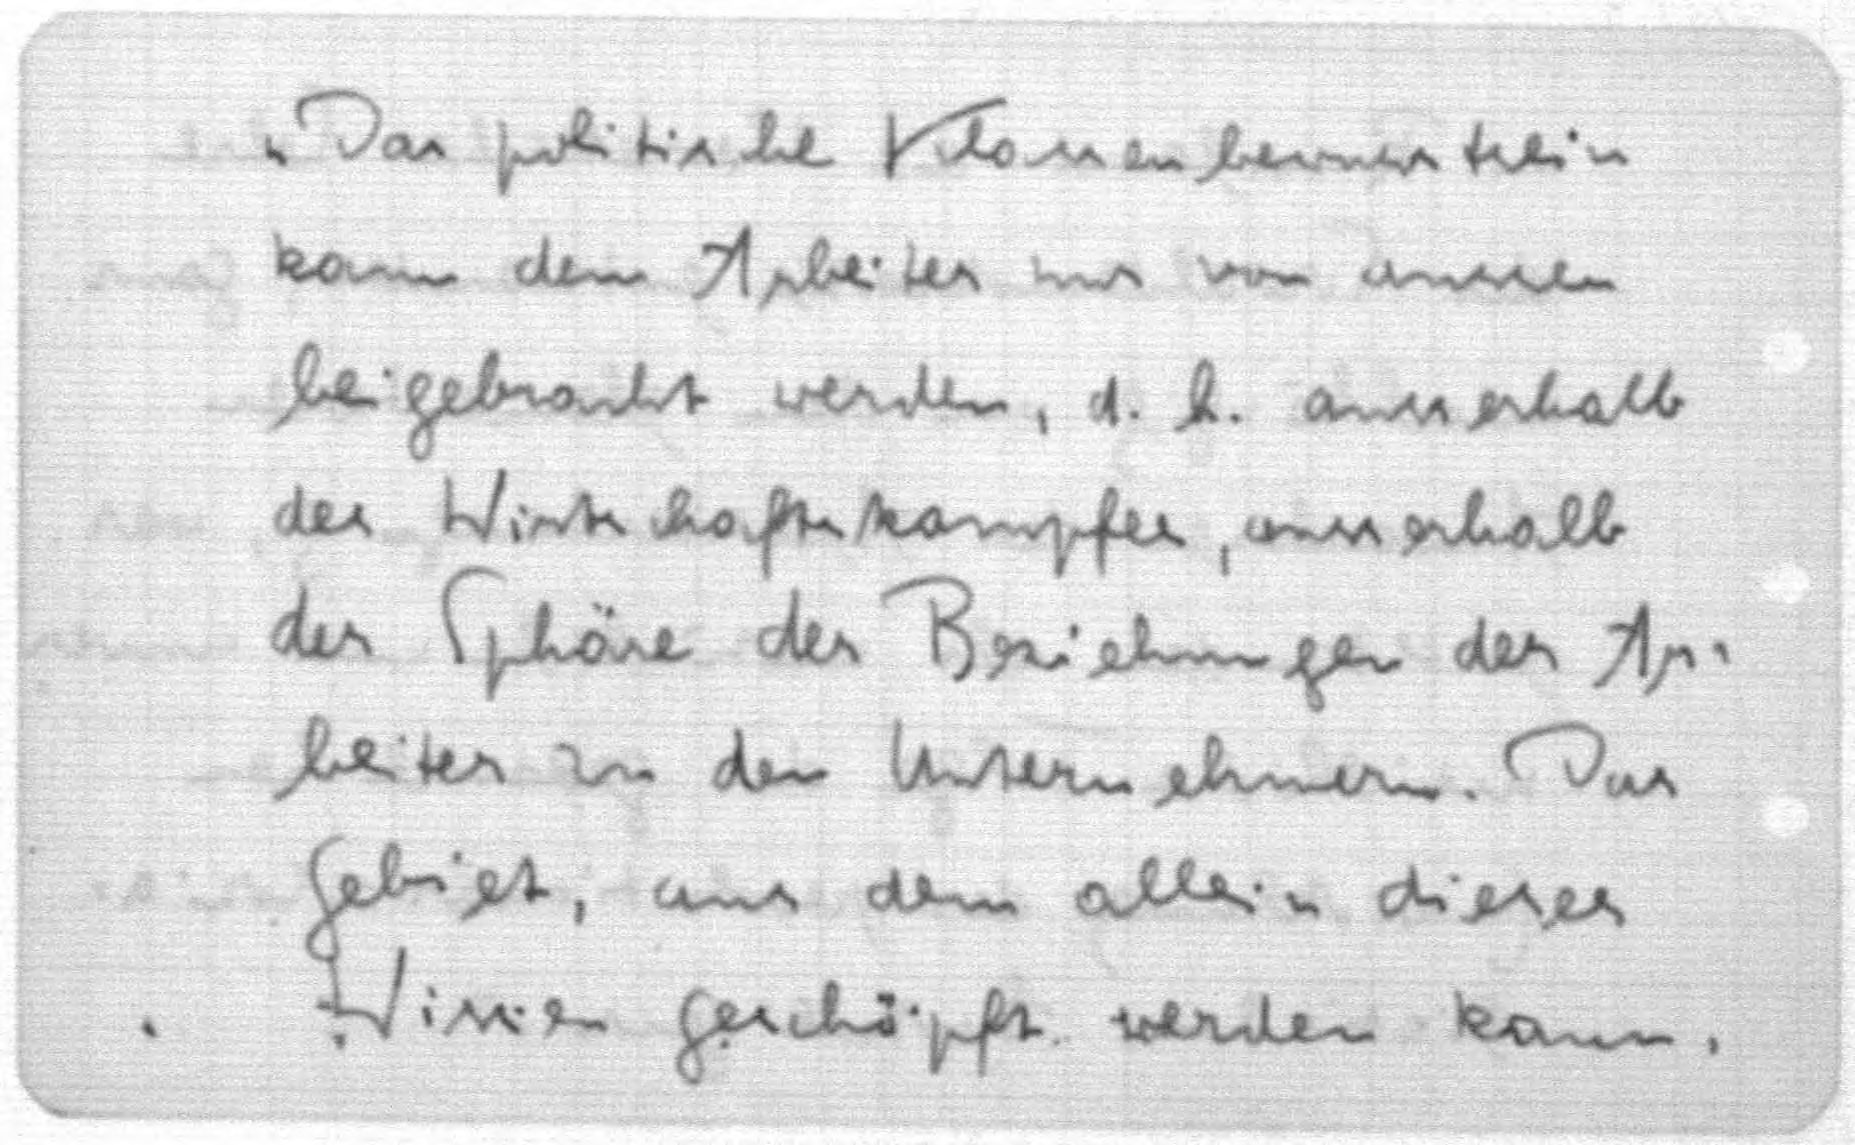 „Das politische Klassenbewusstsein
kann dem Arbeiter nur von aussen
beigebracht werden, d. h. ausserhalb
des Wirtschaftskampfes, ausserhalb
der Sphäre der Beziehungen der Ar-
beiter zu den Unternehmern. Das
Gebiet, aus dem allein dieses
Wissen geschöpft werden kann,